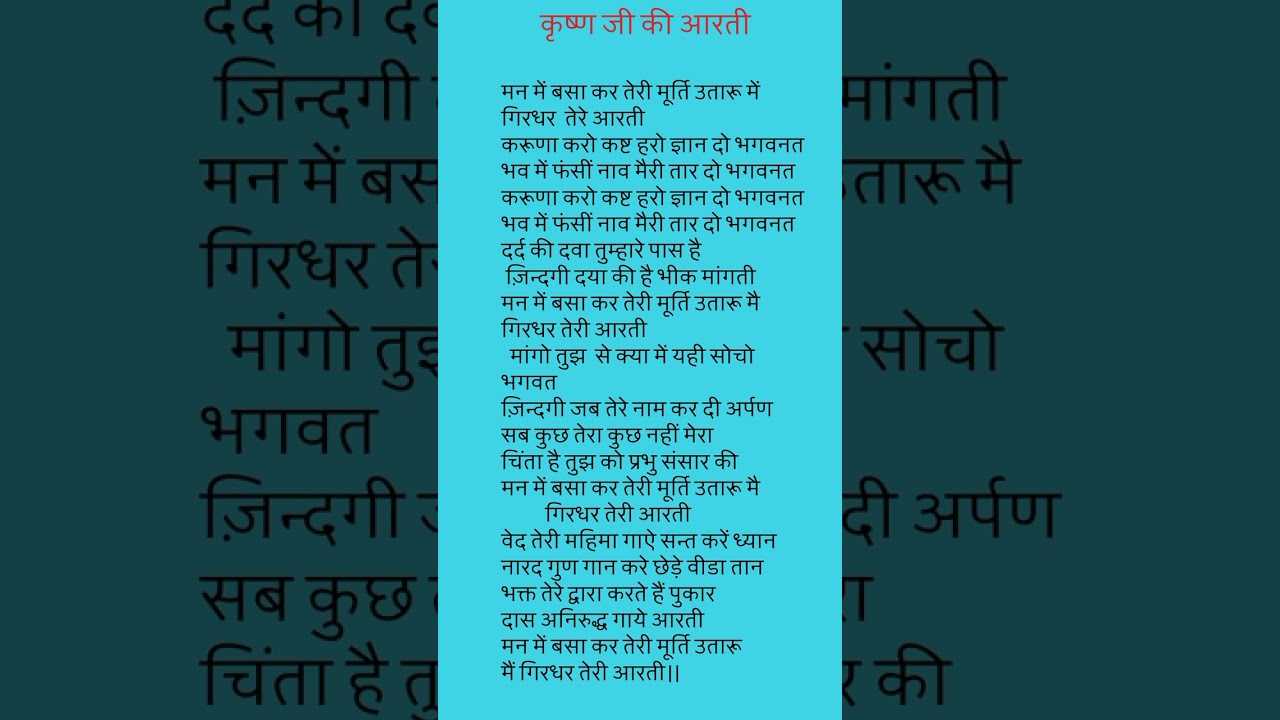 कृष्ण जी की आरती
मन में बसा कर तेरी मूर्ति उतारू में
गिरधर तेरे आरती
करूणा करो कष्ट हरो ज्ञान दो भगवनत
भव में फंसीं नाव मैरी तार दो भगवनत
करूणा करो कष्ट हरो ज्ञान दो भगवनत
भव में फंसीं नाव मैरी तार दो भगवनत
दर्द की दवा तुम्हारे पास है
ज़िन्दगी दया की है भीक मांगती
मन में बसा कर तेरी मूर्ति उतारू मै
गिरधर तेरी आरती
मांगो तुझ से क्या में यही सोचो
भगवत
ज़िन्दगी जब तेरे नाम कर दी अर्पण
सब कुछ तेरा कुछ नहीं मेरा
चिंता है तुझ को प्रभु संसार की
मन में बसा कर तेरी मूर्ति उतारू मै
गिरधर तेरी आरती
वेद तेरी महिमा गाऐ सन्त करें ध्यान
नारद गुण गान करे छेड़े वीडा तान
भक्त तेरे द्वारा करते हैं पुकार
दास अनिरुद्ध गाये आरती
मन में बसा कर तेरी मूर्ति उतारू
मैं गिरधर तेरी आरती।।